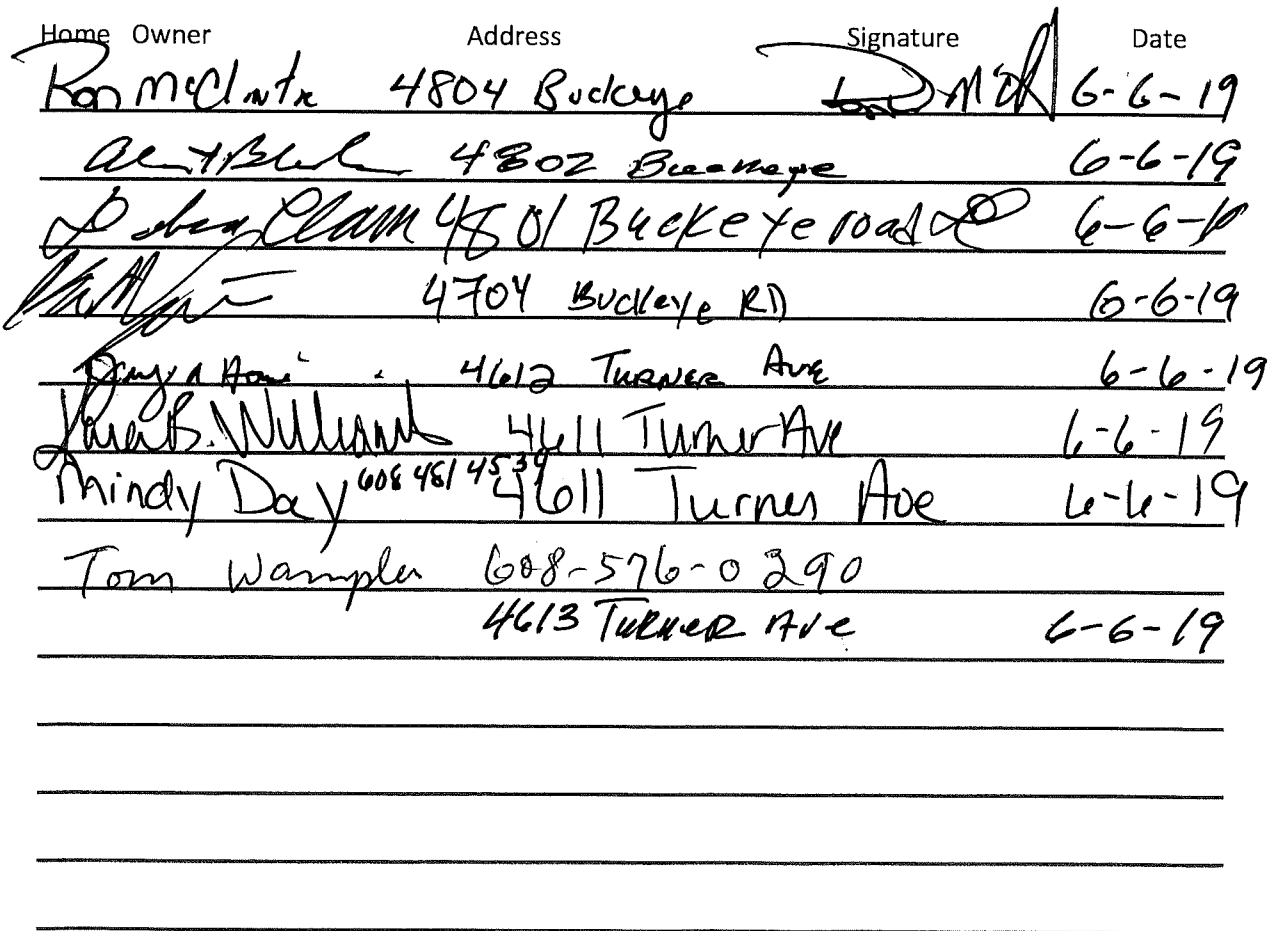 Home Owner Address Signature Date
Ron McClintx 4804 Buckeye 6-6-19
4802 6-6-19
Clam 4801 Buckeye road 6-6-19
4704 Buckeye RD 6-6-19
4612 TURNER AVE 6-6-19
B. Williams 4611 Turner Ave 6-6-19
Mindy Day 608 481 4539 4611 Turner Ave 6-6-19
Tom Wampler 608-576-0290
4613 TURNER Ave 6-6-19